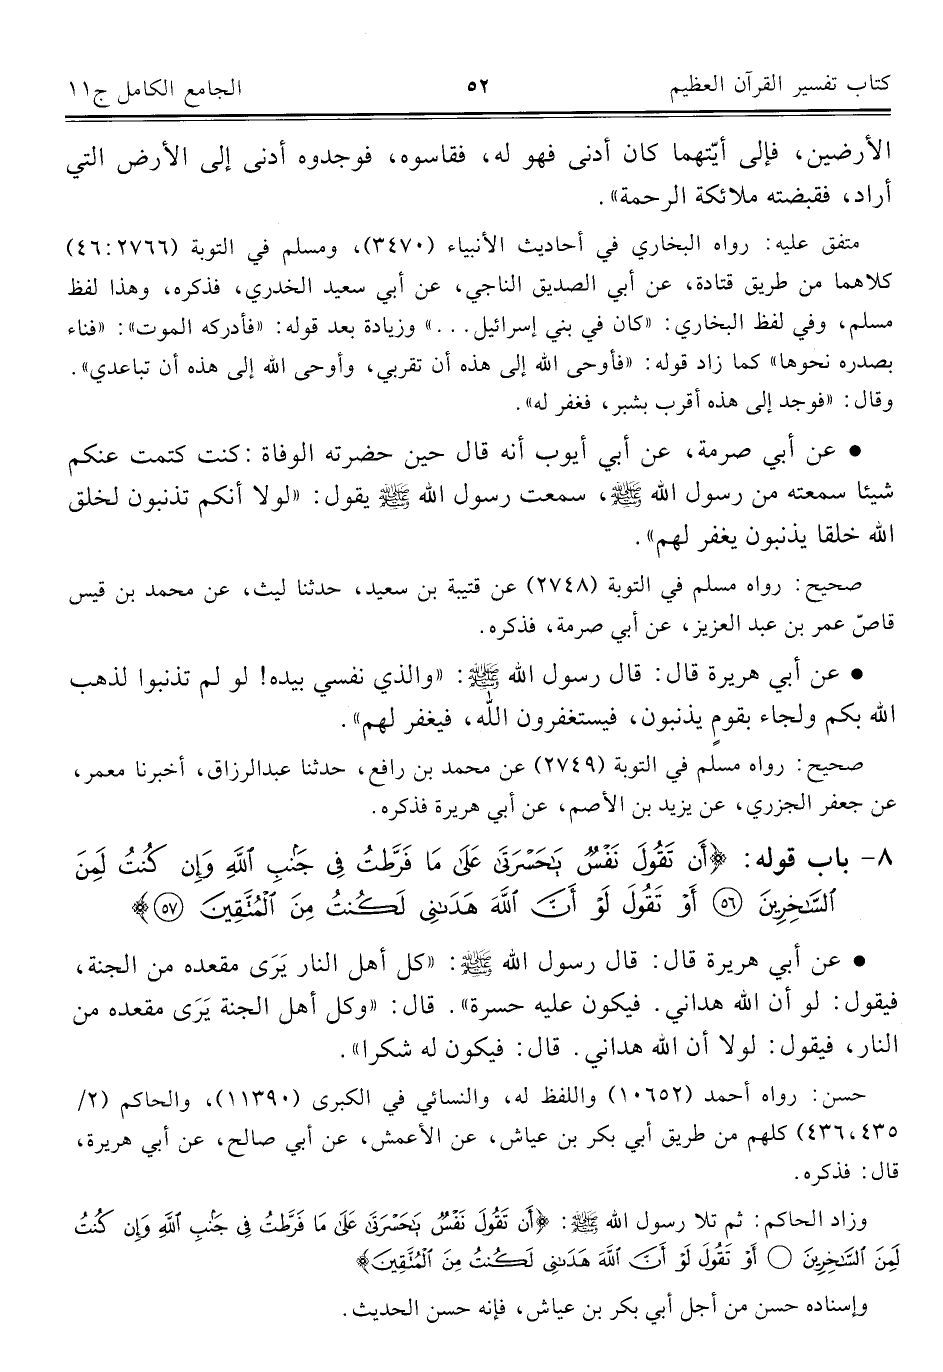 كتاب تفسير القرآن العظيم ٥٢ الجامع الكامل ج١١
الأرضين، فإلى أيّتهما كان أدنى فهو له، فقاسوه، فوجدوه أدنى إلى الأرض التي
أراد، فقبضته ملائكة الرحمة».
متفق عليه: رواه البخاري في أحاديث الأنبياء (٣٤٧٠)، ومسلم في التوبة (٢٧٦٦:٤٦)
كلاهما من طريق قتادة، عن أبي الصديق الناجي، عن أبي سعيد الخدري، فذكره، وهذا لفظ
مسلم، وفي لفظ البخاري: «كان في بني إسرائيل...» وزيادة بعد قوله: «فأدركه الموت»: «فناء
بصدره نحوها» كما زاد قوله: «فأوحى الله إلى هذه أن تقربي، وأوحى الله إلى هذه أن تباعدي».
وقال: «فوجد إلى هذه أقرب بشبر، فغفر له».
• عن أبي صرمة، عن أبي أيوب أنه قال حين حضرته الوفاة: كنت كتمت عنكم
شيئا سمعته من رسول الله ﷺ، سمعت رسول الله ﷺ يقول: «لولا أنكم تذنبون لخلق
الله خلقا يذنبون يغفر لهم».
صحيح: رواه مسلم في التوبة (٢٧٤٨) عن قتيبة بن سعيد، حدثنا ليث، عن محمد بن قيس
قاصّ عمر بن عبد العزيز، عن أبي صرمة، فذكره.
• عن أبي هريرة قال: قال رسول الله ﷺ: «والذي نفسي بيده! لو لم تذنبوا لذهب
الله بكم ولجاء بقومٍ يذنبون، فيستغفرون الله، فيغفر لهم».
صحيح: رواه مسلم في التوبة (٢٧٤٩) عن محمد بن رافع، حدثنا عبدالرزاق، أخبرنا معمر،
عن جعفر الجزري، عن يزيد بن الأصم، عن أبي هريرة فذكره.
٨- باب قوله: ﴿أَن تَقُولَ نَفْسٌ يَٰحَسْرَتَىٰ عَلَىٰ مَا فَرَّطتُ فِى جَنۢبِ ٱللَّهِ وَإِن كُنتُ لَمِنَ
ٱلسَّٰخِرِينَ ۝٥٦ أَوْ تَقُولَ لَوْ أَنَّ ٱللَّهَ هَدَىٰنِى لَكُنتُ مِنَ ٱلْمُتَّقِينَ ۝٥٧﴾
• عن أبي هريرة قال: قال رسول الله ﷺ: «كل أهل النار يَرَى مقعده من الجنة،
فيقول: لو أن الله هداني. فيكون عليه حسرة». قال: «وكل أهل الجنة يَرَى مقعده من
النار، فيقول: لولا أن الله هداني. قال: فيكون له شكرا».
حسن: رواه أحمد (١٠٦٥٢) واللفظ له، والنسائي في الكبرى (١١٣٩٠)، والحاكم (٢/
٤٣٥،٤٣٦) كلهم من طريق أبي بكر بن عياش، عن الأعمش، عن أبي صالح، عن أبي هريرة،
قال: فذكره.
وزاد الحاكم: ثم تلا رسول الله ﷺ: ﴿أَن تَقُولَ نَفْسٌ يَٰحَسْرَتَىٰ عَلَىٰ مَا فَرَّطتُ فِى جَنۢبِ ٱللَّهِ وَإِن كُنتُ
لَمِنَ ٱلسَّٰخِرِينَ ۝ أَوْ تَقُولَ لَوْ أَنَّ ٱللَّهَ هَدَىٰنِى لَكُنتُ مِنَ ٱلْمُتَّقِينَ﴾
وإسناده حسن من أجل أبي بكر بن عياش، فإنه حسن الحديث.